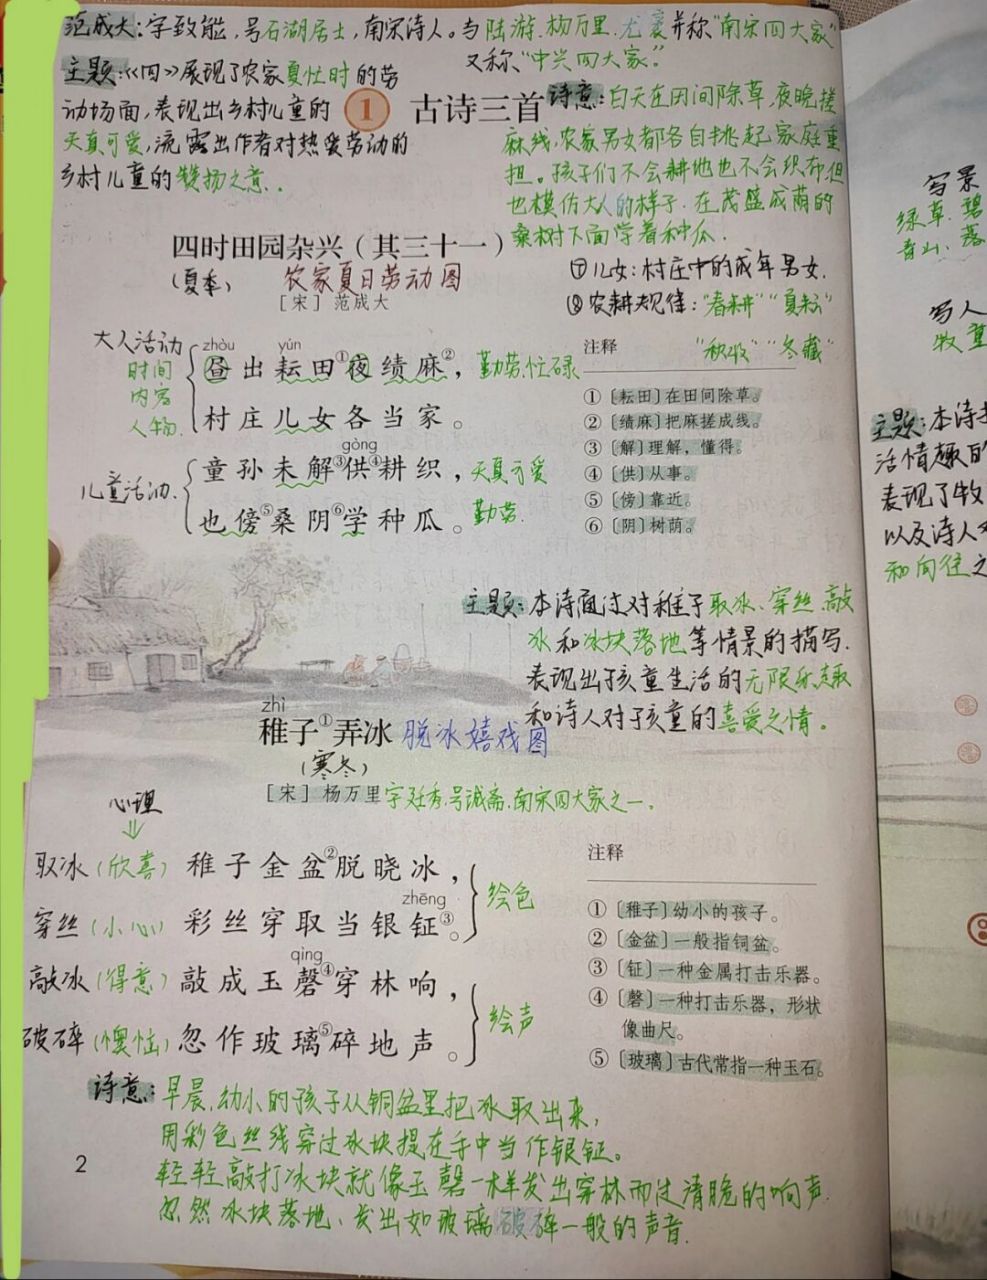 范成大:字致能,号石湖居士,南宋诗人。与陆游.杨万里.尤袤并称“南宋四大家”
又称“中兴四大家”
主题:《四》展现了农家夏忙时的劳
动场面,表现出乡村儿童的
天真可爱,流露出作者对热爱劳动的
乡村儿童的赞扬之意.
1 古诗三首
诗意:白天在田间除草,夜晚搓
麻线,农家男女都各自挑起家庭重
担。孩子们不会耕地也不会织布但
也模仿大人的样子.在茂盛成荫的
桑树下面学着种瓜.
四时田园杂兴(其三十一)
(夏季) 农家夏日劳动图
[宋] 范成大
⑦儿女:村庄中的成年男女.
⑧农耕规律:“春耕”“夏耘”
“秋收”“冬藏”
大人活动
时间
内容
人物.
zhòu yún
昼出耘田①夜绩麻②, 勤劳.忙碌
村庄儿女各当家。
gòng
儿童活动. 童孙未解③供④耕织, 天真可爱
也傍⑤桑阴⑥学种瓜。 勤劳.
注释
①〔耘田〕在田间除草。
②〔绩麻〕把麻搓成线。
③〔解〕理解,懂得。
④〔供〕从事。
⑤〔傍〕靠近。
⑥〔阴〕树荫。
主题:本诗通过对稚子取冰、穿丝.敲
冰和冰块落地等情景的描写.
表现出孩童生活的无限乐趣
和诗人对孩童的喜爱之情。
zhì
稚子①弄冰 脱冰嬉戏图
(寒冬)
[宋] 杨万里 字廷秀.号诚斋.南宋四大家之一.
心理
取冰(欣喜) 稚子金盆②脱晓冰,
zhēng
穿丝(小心) 彩丝穿取当银钲③。
绘色
qìng
敲冰(得意) 敲成玉磬④穿林响,
破碎(懊恼) 忽作玻璃⑤碎地声。
绘声
注释
①〔稚子〕幼小的孩子。
②〔金盆〕一般指铜盆。
③〔钲〕一种金属打击乐器。
④〔磬〕一种打击乐器,形状
像曲尺。
⑤〔玻璃〕古代常指一种玉石。
诗意:早晨,幼小的孩子从铜盆里把冰取出来,
用彩色丝线穿过冰块提在手中当作银钲。
轻轻敲打冰块就像玉磬一样发出穿林而过清脆的响声.
忽然冰块落地、发出如玻璃破碎一般的声音.
2
写景
绿草.碧
青山.落
写人
牧童
主题:本诗
活情趣的
表现了牧
以及诗人对
和向往之